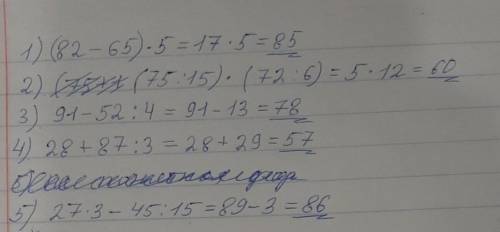 1) (82 - 65) · 5 = 17 · 5 = 85
2) (75 : 15) · (72 : 6) = 5 · 12 = 60
3) 91 - 52 : 4 = 91 - 13 = 78
4) 28 + 87 : 3 = 28 + 29 = 57
5) 27 · 3 - 45 : 15 = 89 - 3 = 86